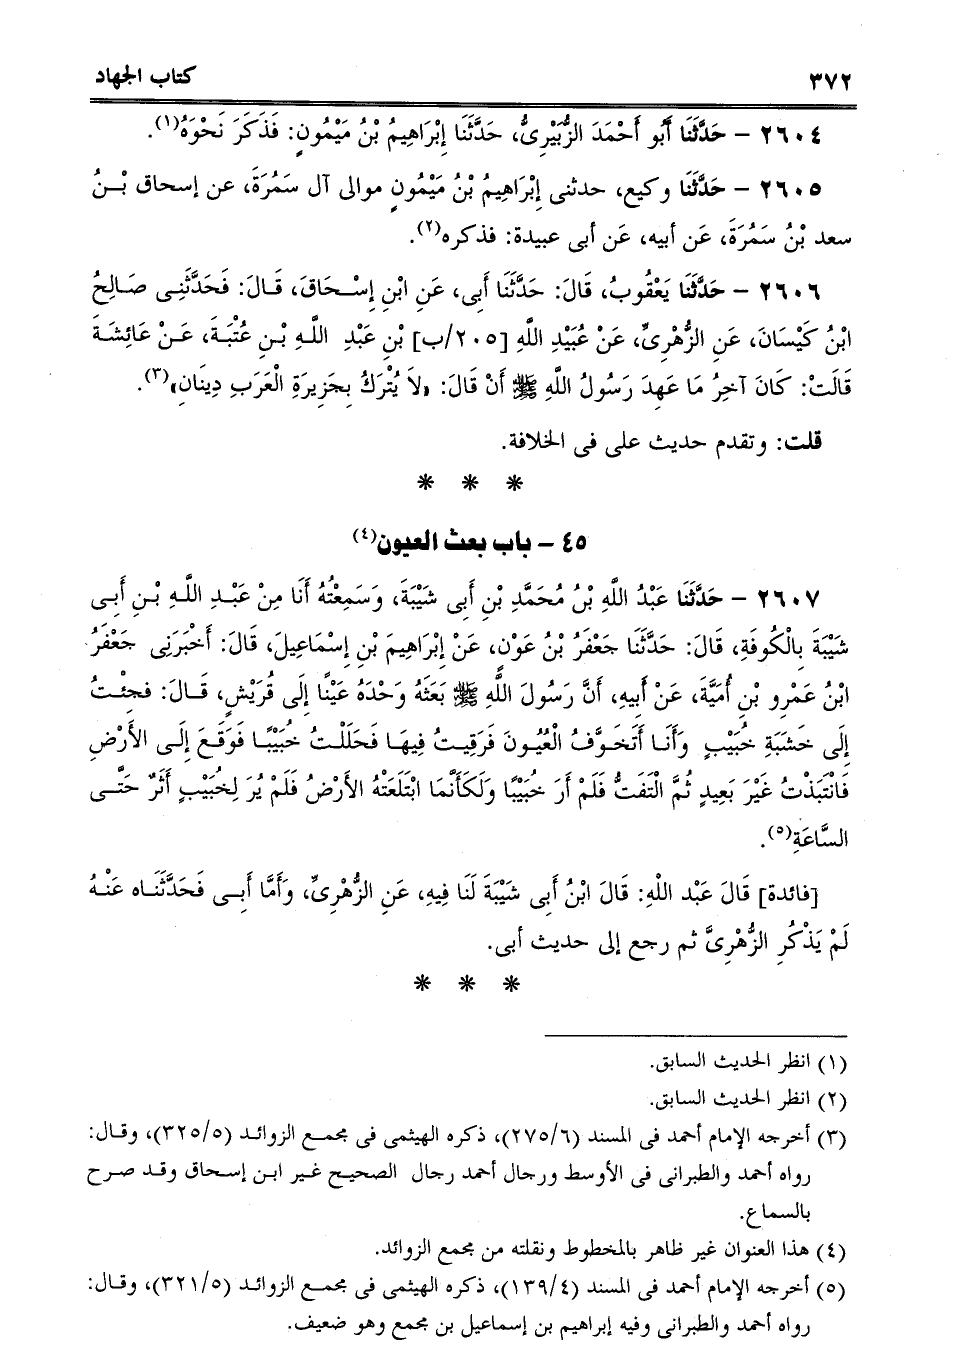 ٣٧٢ كتاب الجهاد
٢٦٠٤ – حَدَّثَنَا أَبُو أَحْمَدَ الزُّبَيْرِىُّ، حَدَّثَنَا إِبْرَاهِيمُ بْنُ مَيْمُونٍ: فَذَكَرَ نَحْوَهُ(١).
٢٦٠٥ – حَدَّثَنَا وكيع، حدثنى إِبْرَاهِيمُ بْنُ مَيْمُونٍ موالى آل سَمُرَةَ، عن إسحاق بْنُ
سعد بْنُ سَمُرَةَ، عَن أبيه، عَن أبى عبيدة: فذكره(٢).
٢٦٠٦ – حَدَّثَنَا يَعْقُوبُ، قَالَ: حَدَّثَنَا أَبِى، عَنِ ابْنِ إِسْحَاقَ، قَالَ: فَحَدَّثَنِى صَالِحُ
ابْنُ كَيْسَانَ، عَنِ الزُّهْرِىِّ، عَنْ عُبَيْدِ اللَّهِ [٢٠٥/ب] بْنِ عَبْدِ اللَّهِ بْنِ عُتْبَةَ، عَنْ عَائِشَةَ
قَالَتْ: كَانَ آخِرُ مَا عَهِدَ رَسُولُ اللَّهِ ﷺ أَنْ قَالَ: «لاَ يُتْرَكُ بِجَزِيرَةِ الْعَرَبِ دِينَانِ»(٣).
قلت: وتقدم حديث على فى الخلافة.
* * *
٤٥ – باب بعث العيون(٤)
٢٦٠٧ – حَدَّثَنَا عَبْدُ اللَّهِ بْنُ مُحَمَّدِ بْنِ أَبِى شَيْبَةَ، وَسَمِعْتُهُ أَنَا مِنْ عَبْدِ اللَّهِ بْنِ أَبِى
شَيْبَةَ بِالْكُوفَةِ، قَالَ: حَدَّثَنَا جَعْفَرُ بْنُ عَوْنٍ، عَنْ إِبْرَاهِيمَ بْنِ إِسْمَاعِيلَ، قَالَ: أَخْبَرَنِى جَعْفَرُ
ابْنُ عَمْرِو بْنِ أُمَيَّةَ، عَنْ أَبِيهِ، أَنَّ رَسُولَ اللَّهِ ﷺ بَعَثَهُ وَحْدَهُ عَيْنًا إِلَى قُرَيْشٍ، قَالَ: فَجِئْتُ
إِلَى خَشَبَةِ خُبَيْبٍ وَأَنَا أَتَخَوَّفُ الْعُيُونَ فَرَقِيتُ فِيهَا فَحَلَلْتُ خُبَيْبًا فَوَقَعَ إِلَى الأَرْضِ
فَانْتَبَذْتُ غَيْرَ بَعِيدٍ ثُمَّ الْتَفَتُّ فَلَمْ أَرَ خُبَيْبًا وَلَكَأَنَّمَا ابْتَلَعَتْهُ الأَرْضُ فَلَمْ يُرَ لِخُبَيْبٍ أَثَرٌ حَتَّى
السَّاعَةِ(٥).
[فائدة] قَالَ عَبْد اللَّهِ: قَالَ ابْنُ أَبِى شَيْبَةَ لَنَا فِيهِ، عَنِ الزُّهْرِىِّ، وَأَمَّا أَبِى فَحَدَّثَنَاه عَنْهُ
لَمْ يَذْكُرِ الزُّهْرِىَّ ثم رجع إلى حديث أبى.
* * *
(١) انظر الحديث السابق.
(٢) انظر الحديث السابق.
(٣) أخرجه الإمام أحمد فى المسند (٢٧٥/٦)، ذكره الهيثمى فى مجمع الزوائد (٣٢٥/٥)، وقال:
رواه أحمد والطبرانى فى الأوسط ورجال أحمد رجال الصحيح غير ابن إسحاق وقد صرح
بالسماع.
(٤) هذا العنوان غير ظاهر بالمخطوط ونقلته من مجمع الزوائد.
(٥) أخرجه الإمام أحمد فى المسند (١٣٩/٤)، ذكره الهيثمى فى مجمع الزوائد (٣٢١/٥)، وقال:
رواه أحمد والطبرانى وفيه إبراهيم بن إسماعيل بن مجمع وهو ضعيف.